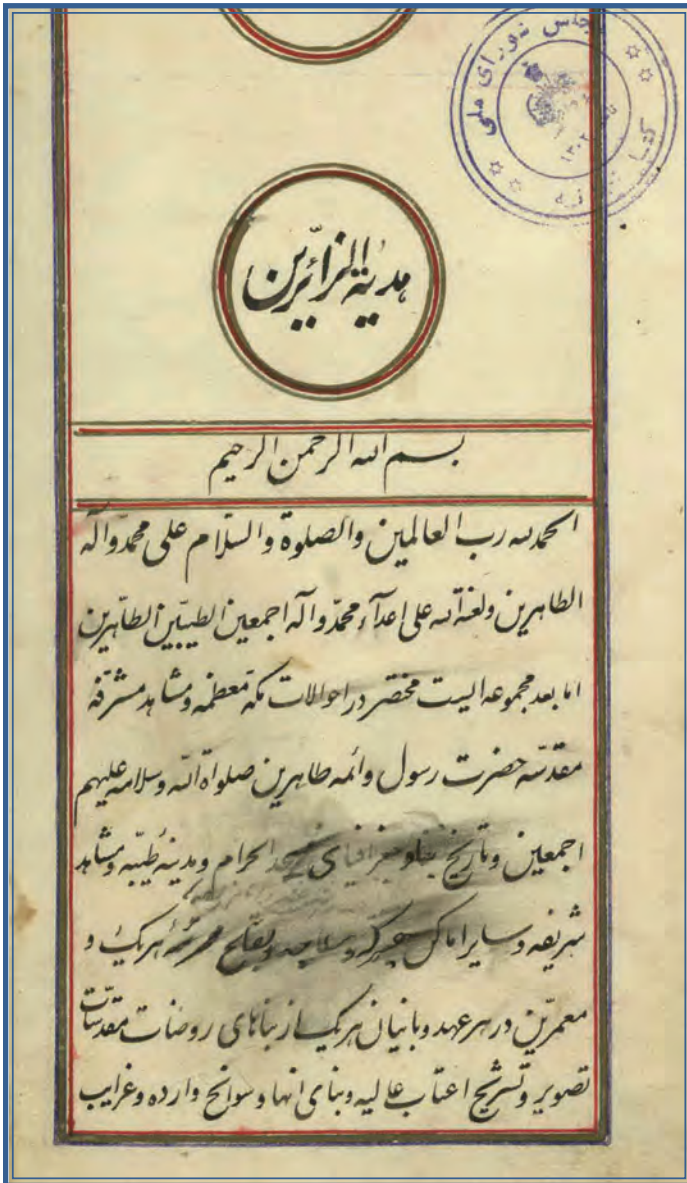 مجلس شورای ملی
۱۳۰۲
هدیة الزائرین
بسم الله الرحمن الرحیم
الحمد لله رب العالمین والصلوة والسلام علی محمد وآله
الطاهرین ولعنة الله علی اعدآء محمد وآله اجمعین الطیبین الطاهرین
اما بعد مجموعه ایست مختصر در احوالات مکه معظمه ومشاهد مشرفه
مقدسه حضرت رسول وائمه طاهرین صلواة الله وسلامه علیهم
اجمعین وتاریخ بنا وجغرافیای مسجد الحرام ومدینه طیبه ومشاهد
شریفه وسایر اماکن متبرکه و هریک و
معمرین در هر عهد وبانیان هریک از بناهای روضات مقدسات
تصویر وتشریح اعتاب عالیه وبنای انها وسوانح وارده وغرایب